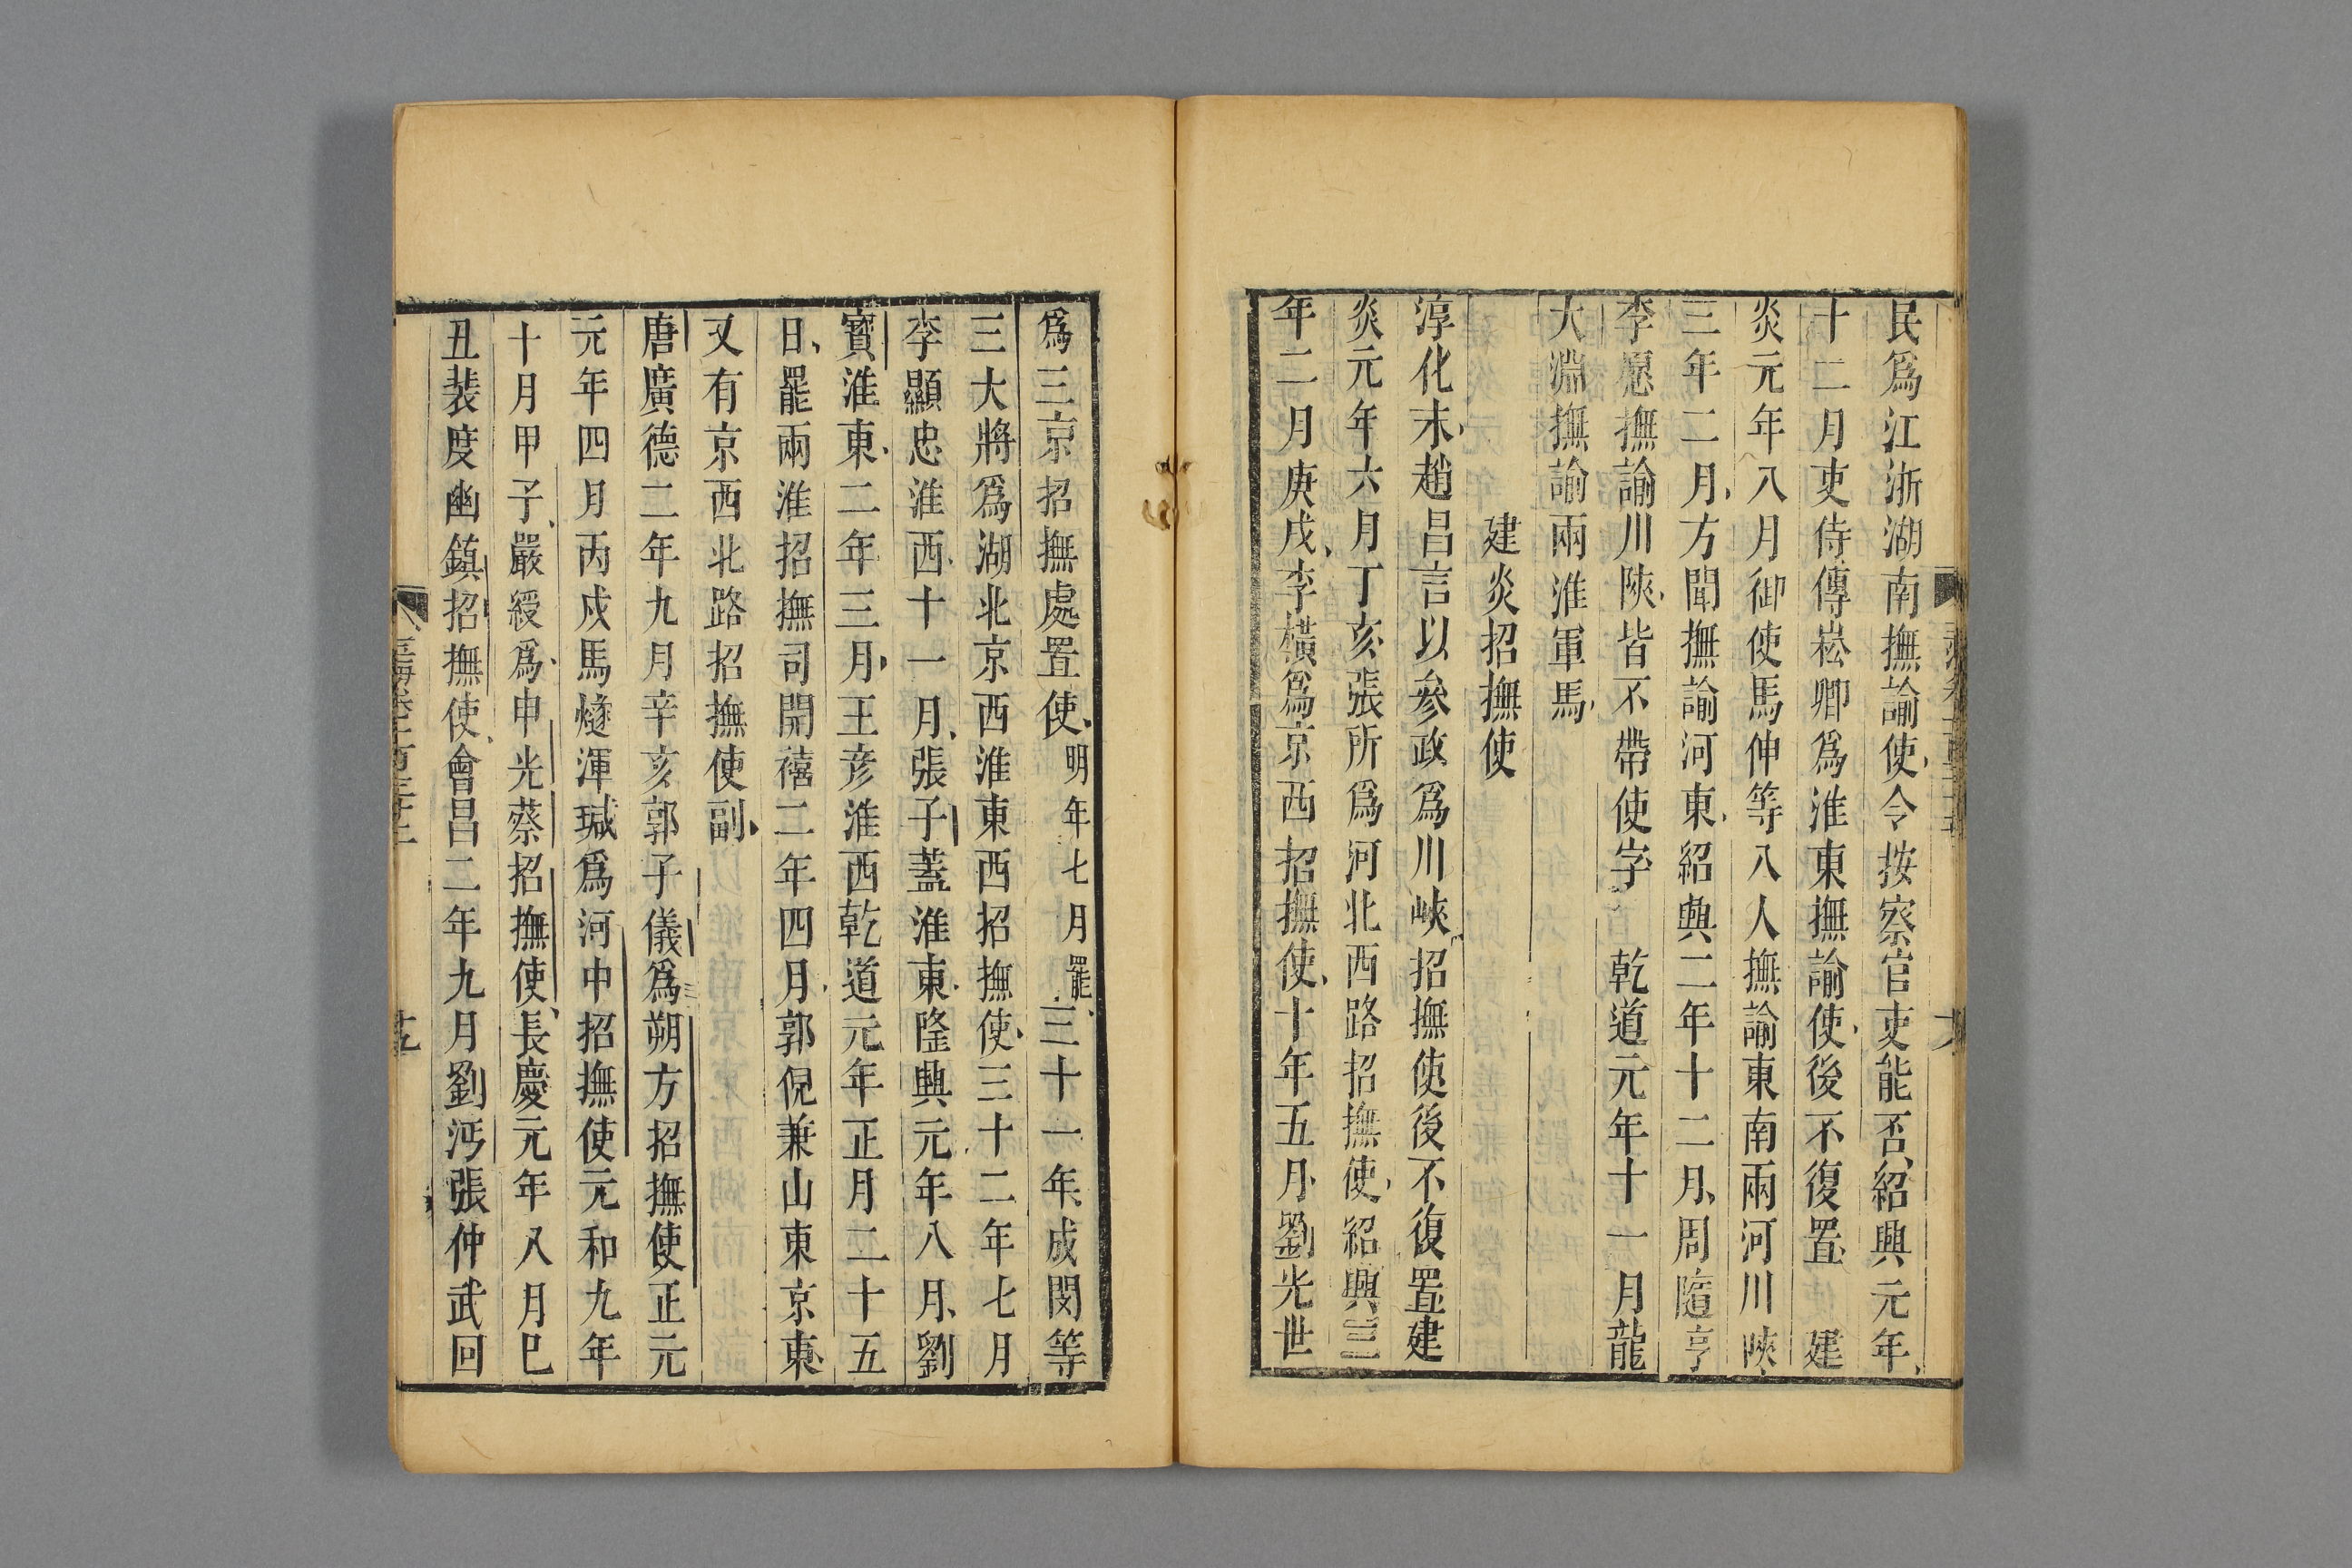 民爲江浙湖南撫諭使令按察官吏能否紹興元年
十二月吏侍傅崧卿爲淮東撫諭使後不復置 建
炎元年八月御使馬伸等八人撫諭東南兩河川陝
三年二月方聞撫諭河東紹興二年十二月周隨亨
李愿撫諭川陝皆不帶使字 乾道元年十一月龍
大淵撫諭兩淮軍馬
建炎招撫使
淳化末趙昌言以參政爲川峽招撫使後不復置建
炎元年六月丁亥張所爲河北西路招撫使紹興三
年二月庚戌李橫爲京西招撫使十年五月劉光世
爲三京招撫處置使明年七月罷三十一年成閔等
三大將爲湖北京西淮東西招撫使三十二年七月
李顯忠淮西十一月張子蓋淮東隆興元年八月劉
寶淮東二年三月王彦淮西乾道元年正月二十五
日罷兩淮招撫司開禧二年四月郭倪兼山東京東
又有京西北路招撫使副
唐廣德二年九月辛亥郭子儀爲朔方招撫使正元
元年四月丙戌馬燧渾瑊爲河中招撫使元和九年
十月甲子嚴綬爲申光蔡招撫使長慶元年八月巳
丑裴度幽鎮招撫使會昌二年九月劉沔張仲武回